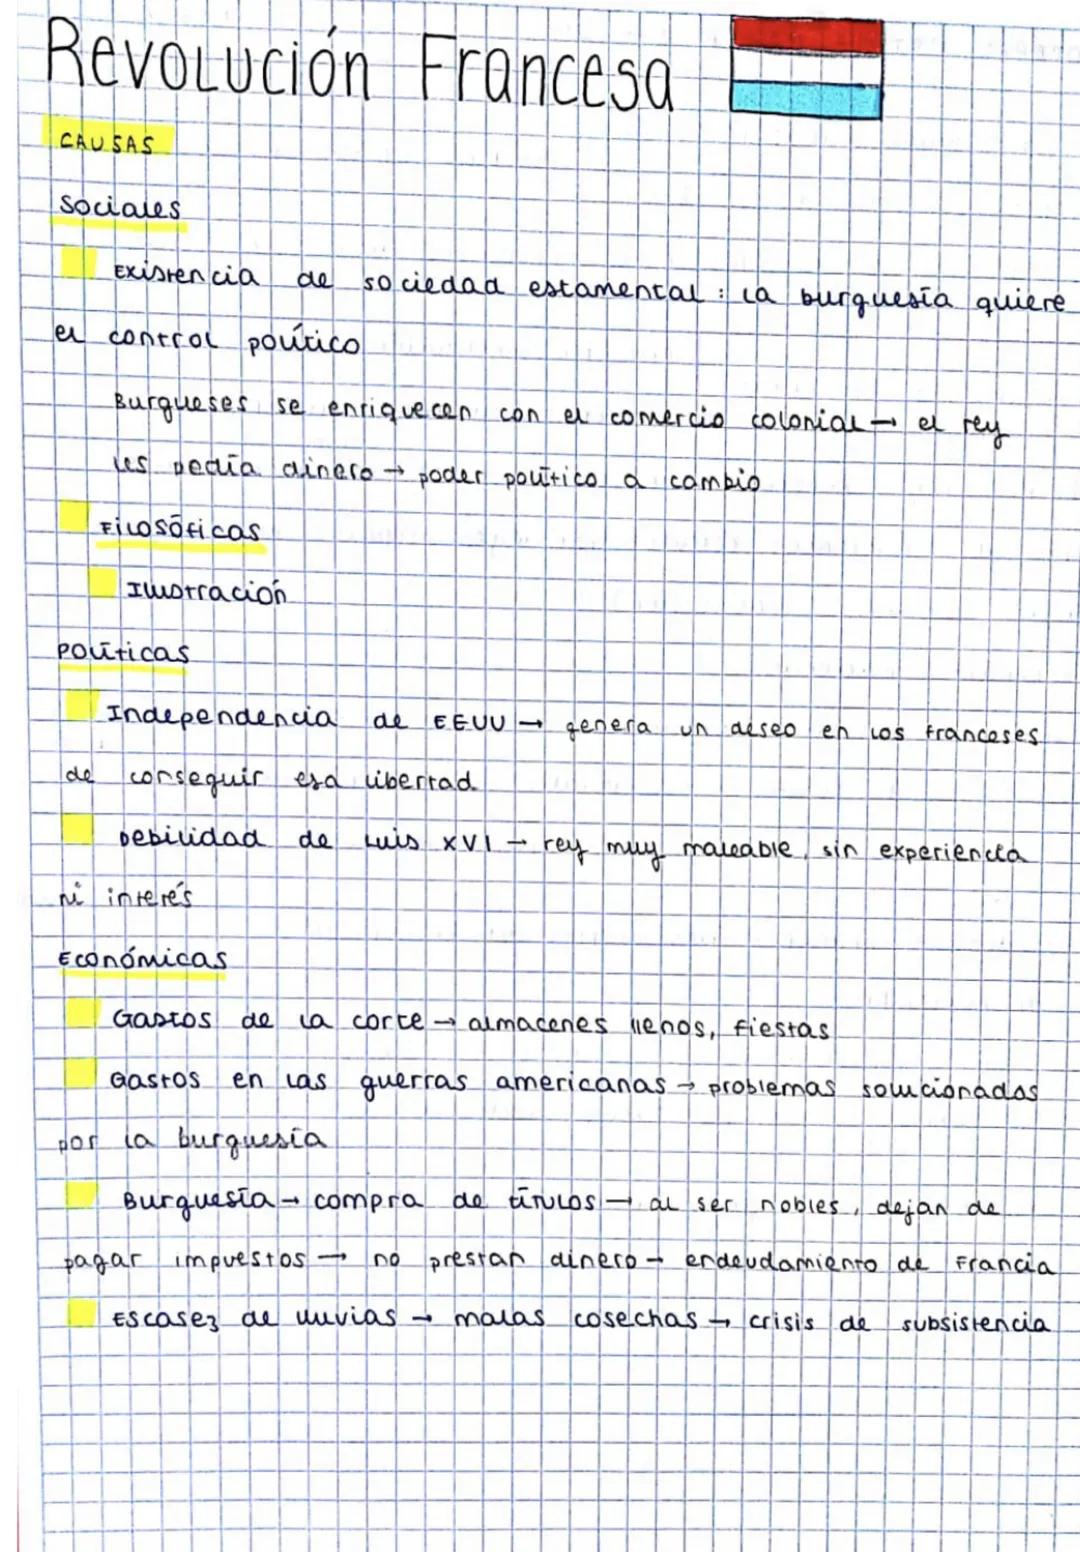 Revolución Francesa
CAUSAS
Sociales
Existencia de sociedad estamental : la burguesía quiere
el control político
Burgueses se enriquecen con el comercio colonial → el rey
les pedía dinero → poder político a cambio
Filosóficas
Ilustración
Políticas
Independencia de EEUU → genera un deseo en los franceses
de conseguir esa libertad
Debilidad de Luis XVI → rey muy maleable, sin experiencia
ni interés
Económicas
Gastos de la corte → almacenes llenos, fiestas
Gastos en las guerras americanas → problemas solucionados
por la burguesía
Burguesía → compra de títulos → al ser nobles, dejan de
pagar impuestos → no prestan dinero → endeudamiento de Francia
Escasez de lluvias → malas cosechas → crisis de subsistencia